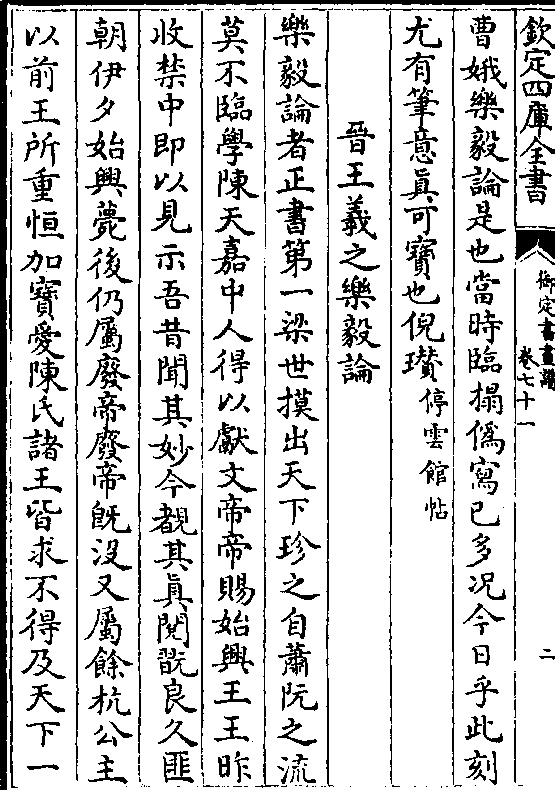 欽定四庫全書
御定書畫譜
卷七十一
二
曹娥樂毅論是也當時臨搨僞寫已多况今日乎此刻
尤有筆意眞可寶也倪瓚停雲館帖
晉王羲之樂毅論
樂毅論者正書第一梁世摸出天下珍之自蕭阮之流
莫不臨學陳天嘉中人得以獻文帝帝賜始興王王昨
收禁中即以見示吾昔聞其妙今覩其眞閱翫良久匪
朝伊夕始興薨後仍屬廢帝廢帝旣沒又屬餘杭公主
以前王所重恒加寶愛陳氏諸王皆求不得及天下一